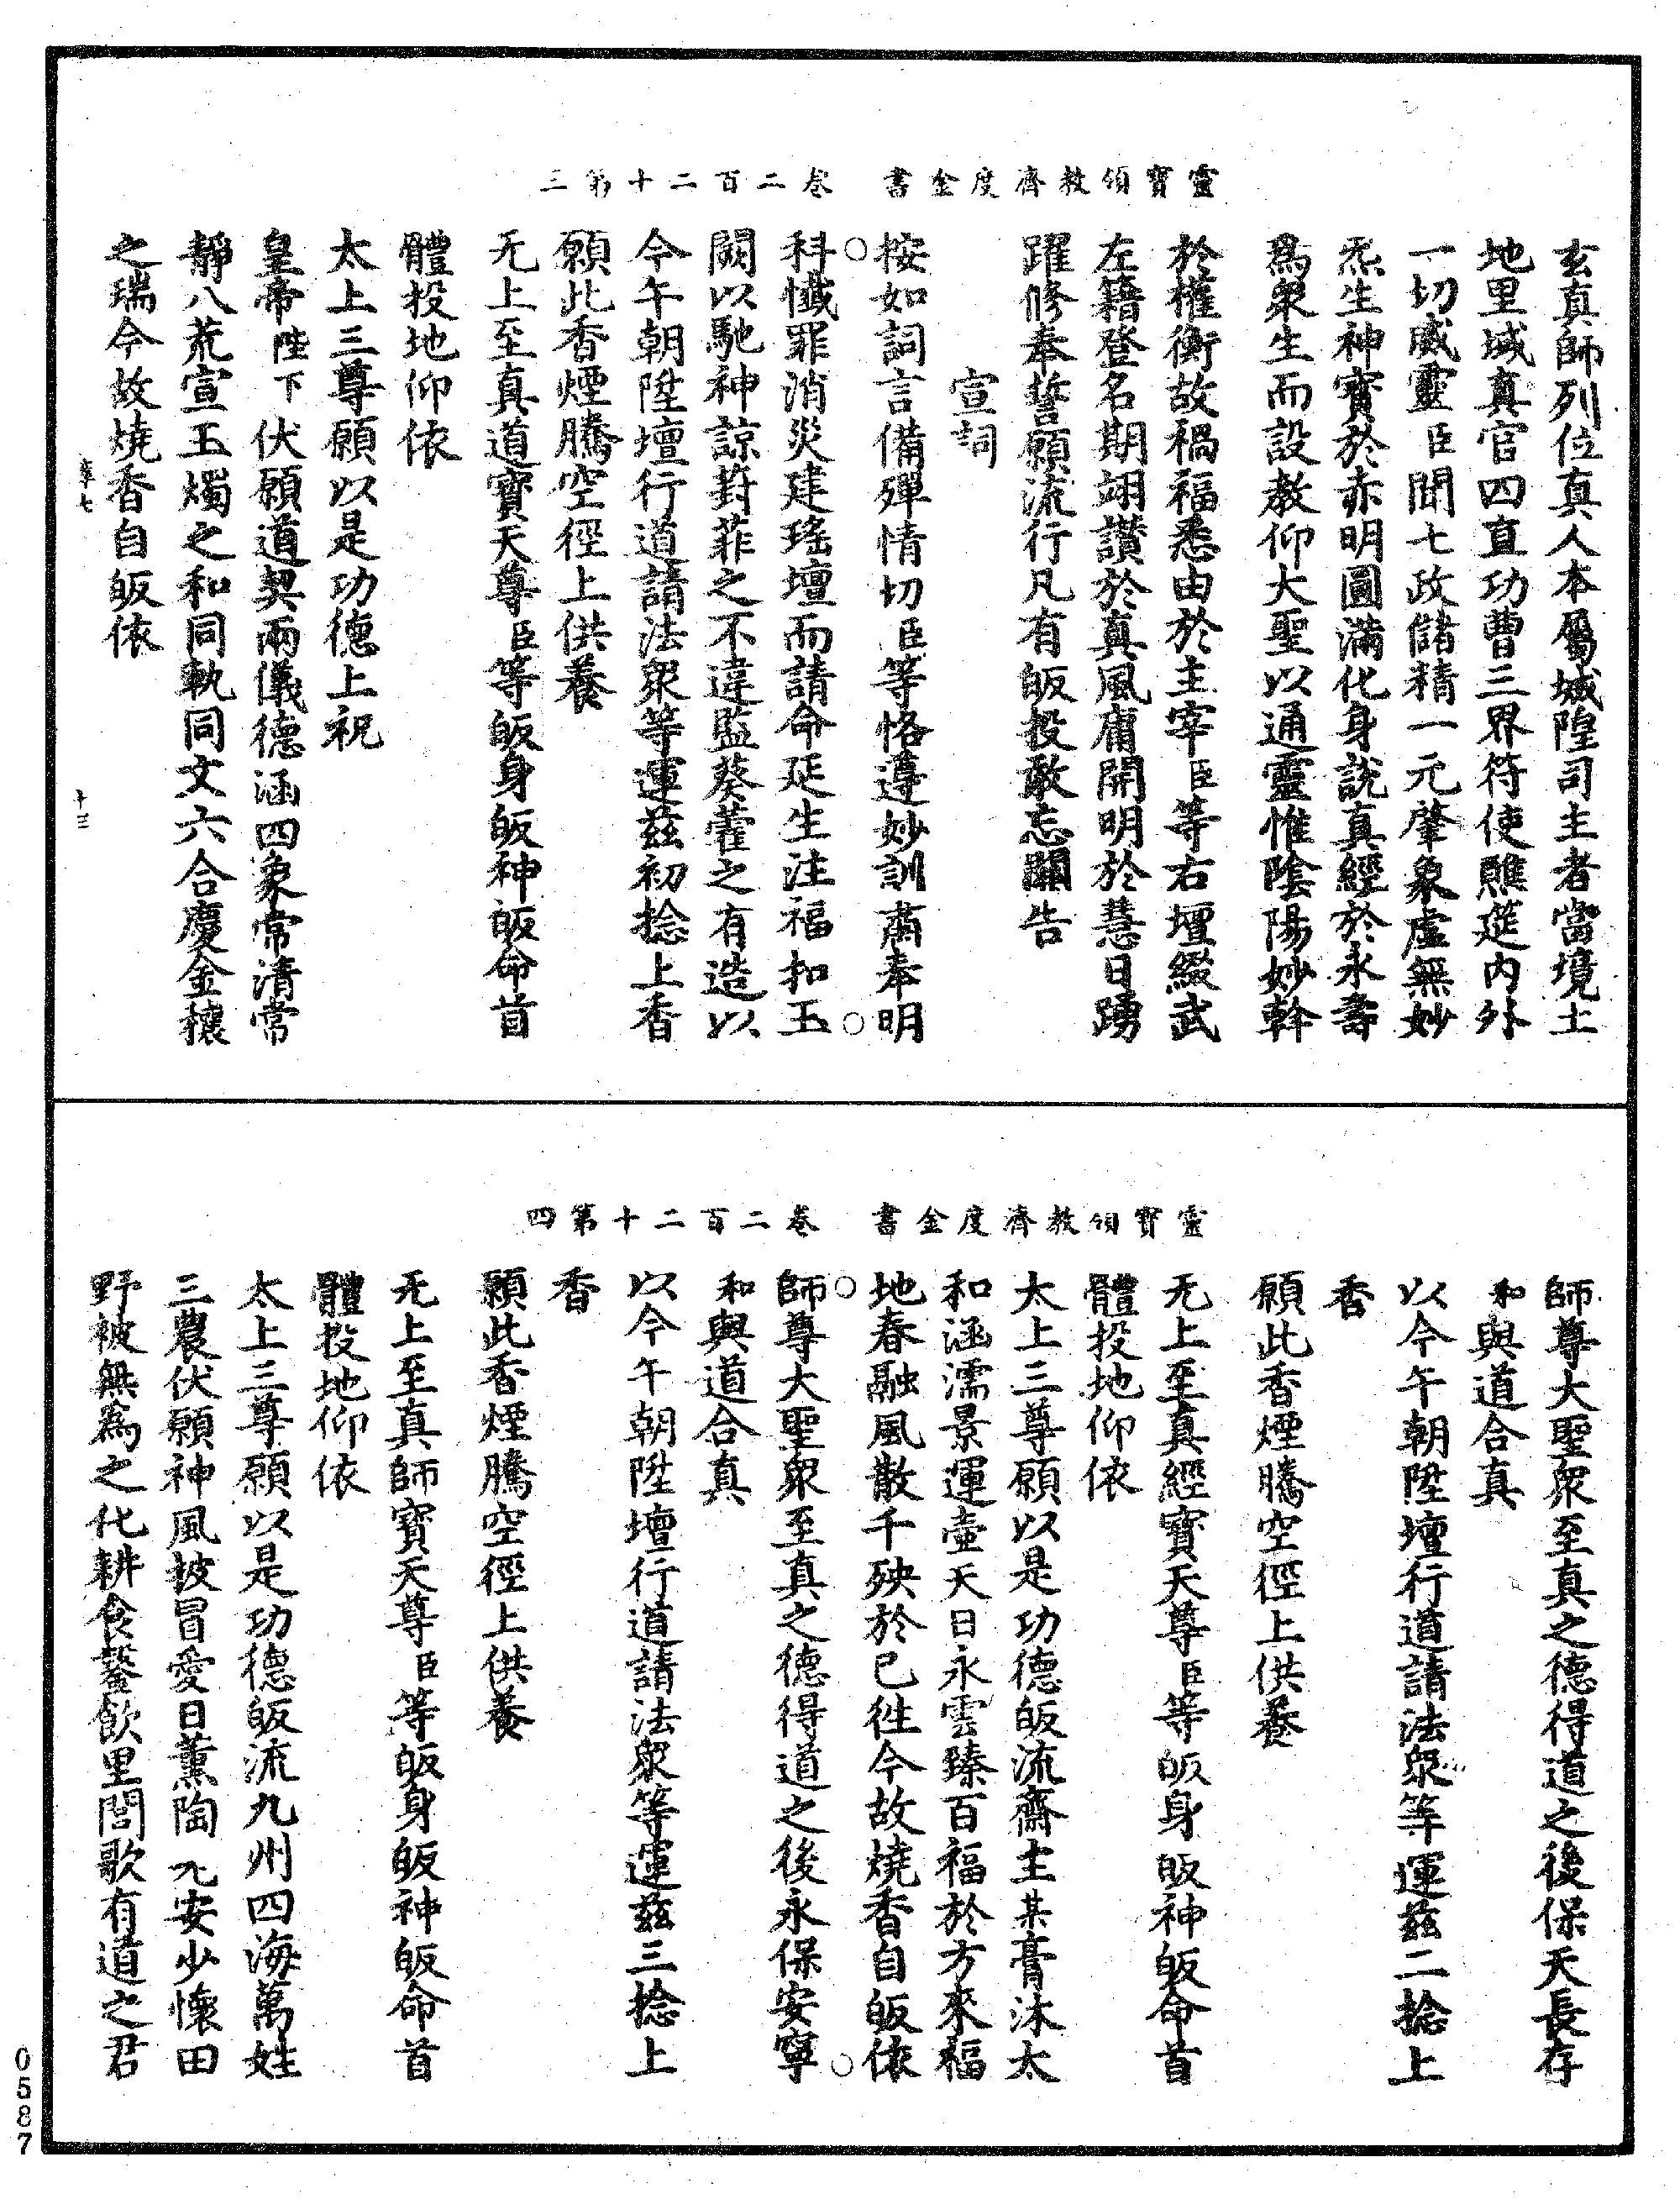 靈寶領教濟度金書　卷二百二十第三
玄真師列位真人本屬城隍司主者當境土
地里域真官四直功曹三界符使醮筵內外
一切威靈臣聞七政儲精一元肇象虛無妙
炁生神寶於赤明圓滿化身說真經於永壽
為眾生而設教仰大聖以通靈惟陰陽妙幹
於權衡故禍福悉由於主宰臣等右壇綴武
左籍登名期翊讚於真風庸開明於慧日踴
躍修奉誓願流行凡有皈投敢忘關告
宣詞
按如詞言備殫情切臣等恪遵妙訓肅奉明
科懺罪消災建瑤壇而請命延生注福扣玉
闕以馳神諒葑菲之不違監葵藿之有造以
今午朝陞壇行道請法眾等運茲初捻上香
願此香煙騰空徑上供養
无上至真道寶天尊臣等皈身皈神皈命首
體投地仰依
太上三尊願以是功德上祝
皇帝陛下伏願道契兩儀德涵四象常清常
靜八荒宣玉燭之和同軌同文六合慶金穰
之瑞今故燒香自皈依
十三
靈寶領教濟度金書　卷二百二十第四
師尊大聖眾至真之德得道之後保天長存
和與道合真
以今午朝陞壇行道請法眾等運茲二捻上
香
願此香煙騰空徑上供養
无上至真經寶天尊臣等皈身皈神皈命首
體投地仰依
太上三尊願以是功德皈流齋主某膏沐太
和涵濡景運壺天日永雲臻百福於方來福
地春融風散千殃於已往今故燒香自皈依
師尊大聖眾至真之德得道之後永保安寧
和與道合真
以今午朝陞壇行道請法眾等運茲三捻上
香
願此香煙騰空徑上供養
无上至真師寶天尊臣等皈身皈神皈命首
體投地仰依
太上三尊願以是功德皈流九州四海萬姓
三農伏願神風披冒愛日薰陶老安少懷田
野被無為之化耕食鑿飲里閭歌有道之君
0587